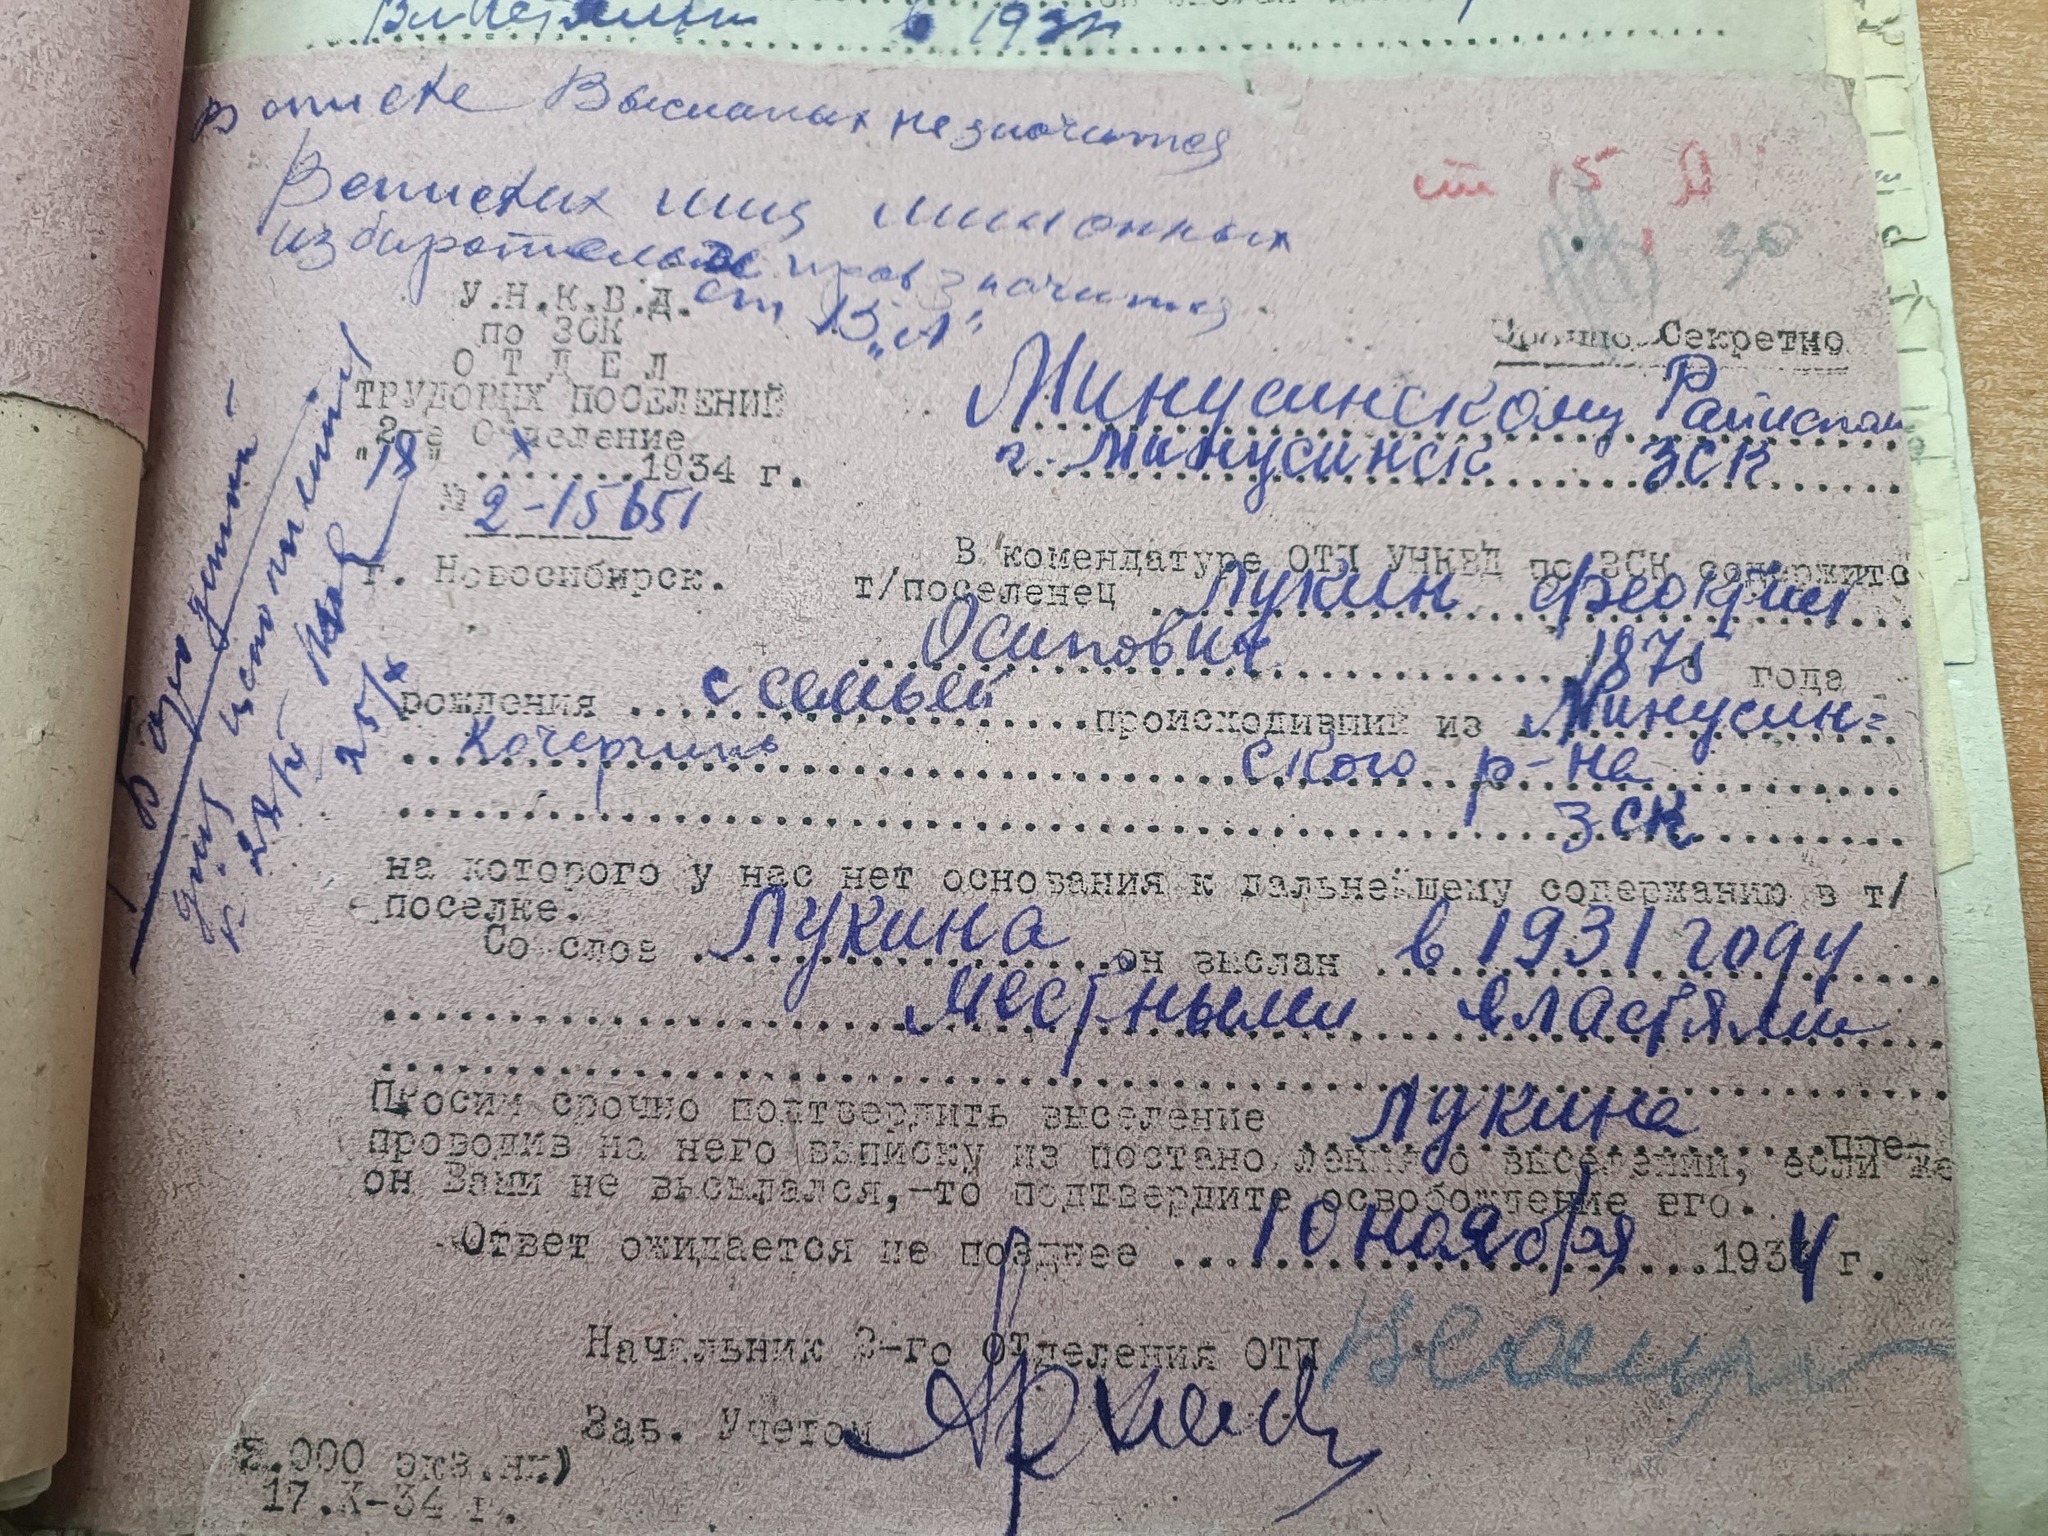 в 193
В списке Высланых не значится
В списках лиц лишонных
избирательных прав значится
ст 15 „А"
ст 15 Д"
30
У.Н.К.В.Д.
по ЗСК
ОТДЕЛ
ТРУДОВЫХ ПОСЕЛЕНИЙ
2-е Отделение
"18" X 1934 г.
№ 2-15651
г. Новосибирск.
Срочно. Секретно
Минусинскому
г. Минусинск ЗСК
В комендатуре ОТП УНКВД по ЗСК содержитс
т/поселенец Лукин Феоктист
Осипович 1875 года
рождения с семьей происходивший из Минусин=
Кочергино ского р-на
ЗСК
на которого у нас нет основания к дальнейшему содержанию в т/
поселке.
Со слов Лукина он выслан в 1931 году
местными властями
Просим срочно подтвердить выселение Лукина пре-
проводив на него выписку из постановления о выселении, если же
он Вами не высылался,-то подтвердите освобождение его.
Ответ ожидается не позднее 10 ноября 1934 г.
Начальник 2-го отделения ОТП
Зав. Учетом
.000 экз.нк)
17.X-34 г.
для исполнения
25/X